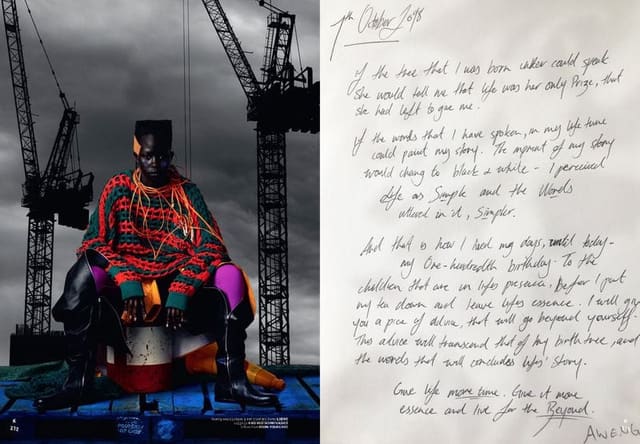 October 2018
if the tree that I was born under could speak
she would tell me that life was her only Prize, that
she had left to give me.
if the words that I have spoken, in my life time
could paint my story. The moment of my story
would chang to black & white - I perceived
Life as Simple and the Words
uttered in it, Simpler.
And that is how I lived my days, until today -
my One-hundredth birthday. To the
children that are in lifes presence. Before I put
my down and leave lifes essence. I will give
you a pice of advice, that will go beyond yourself.
This advice will transcend that of my birth tree, and
the words that will concludes lifes' story.
Give life more time. Give it more
essence and live for the Beyond.
AWENG
272